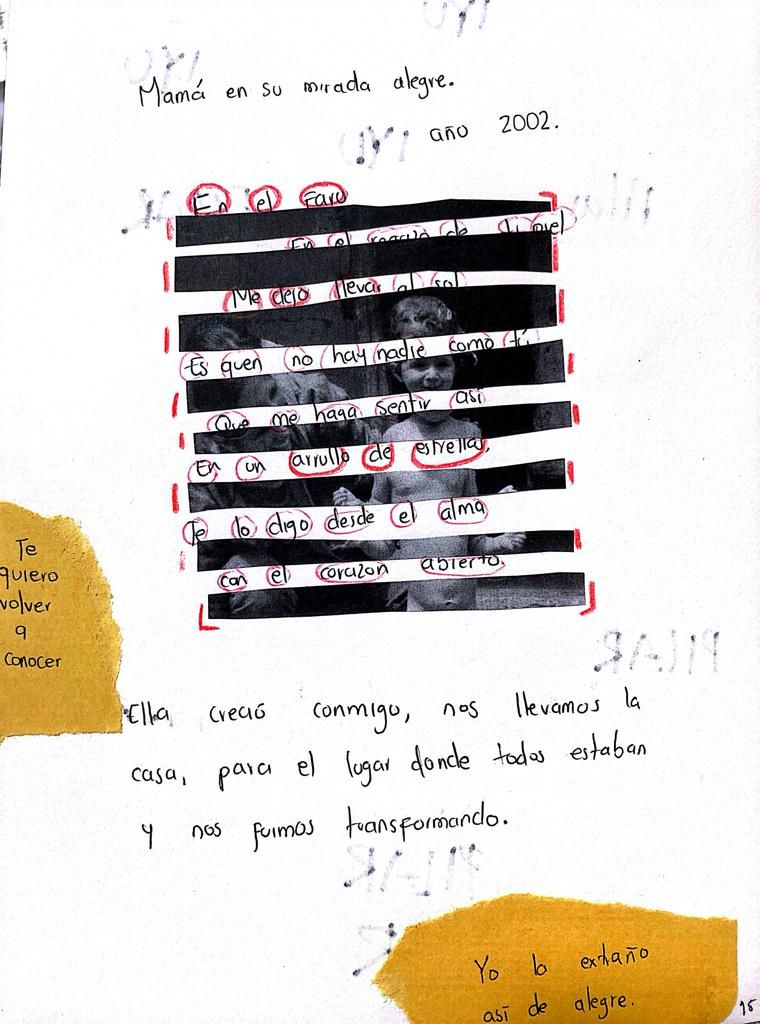 Mamá en su mirada alegre.
año 2002.
En el Faro
En el regazo de tu piel
Me dejo llevar al sol
Es quen no hay nadie como tú
Que me haga sentir así
En un arrullo de estrellas.
Te lo digo desde el alma
con el corazon abierto.
Te
quiero
volver
a
conocer
Ella creció conmigo, nos llevamos la
casa, para el lugar donde todos estaban
y nos fuimos transformando.
PILAR
PILAR
Yo la extraño
así de alegre.
15